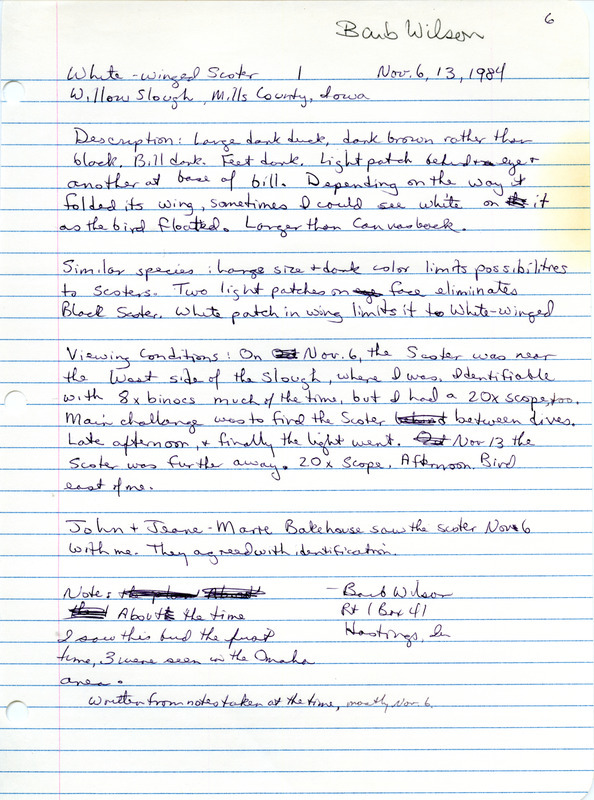 6
Barb Wilson
White-winged Scoter 1 Nov. 6, 13, 1984
Willow Slough, Mills County, Iowa
Description: Large dark duck, dark brown rather than
black. Bill dark. Feet dark. Light patch behind eye +
another at base of bill. Depending on the way it
folded its wing, sometimes I could see white on it
as the bird floated. Larger than Canvasback.
Similar species: Large size + dark color limits possibilities
to scoters. Two light patches on face eliminates
Black Scoter. White patch in wing limits it to White-winged
Viewing Conditions: On Nov. 6, the Scoter was near
the West side of the Slough, where I was. Identifiable
with 8x binocs much of the time, but I had a 20x scope, too.
Main challange was to find the Scoter between dives.
Late afternoon, + finally the light went. Nov 13 the
Scoter was further away. 20x scope. Afternoon. Bird
east of me.
John + Jeane-Marie Bakehouse saw the scoter Nov 6
with me. They agreed with identification.
Note: About the time
I saw this bird the first
time, 3 were seen in the Omaha
area.
- Barb Wilson
Rt 1 Box 41
Hastings, Ia
Written from notes taken at the time, mostly Nov. 6.